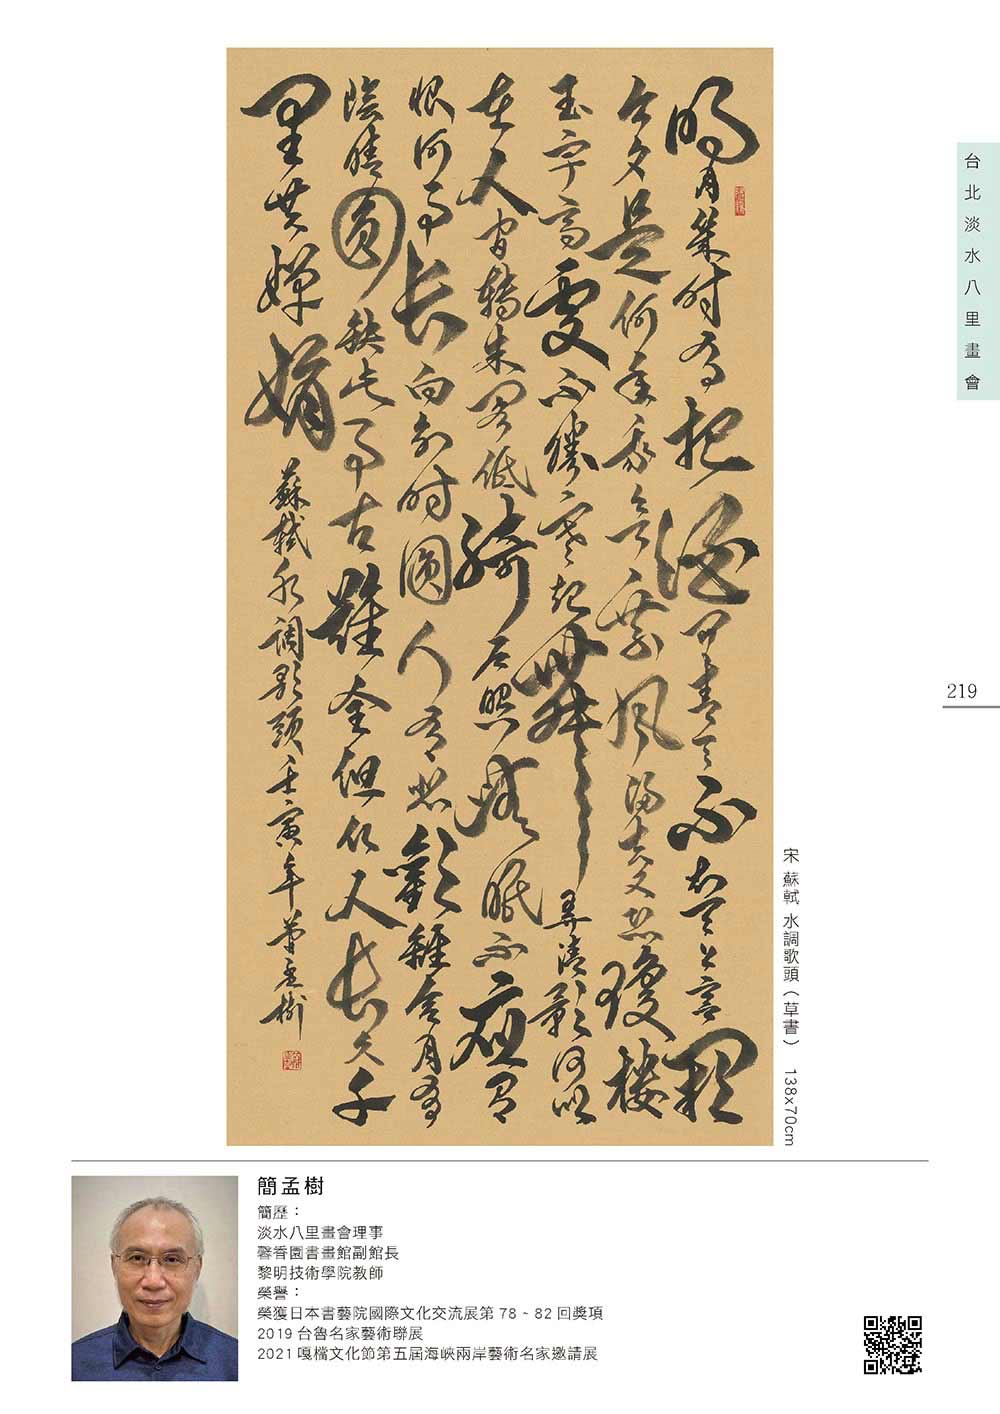 明月幾時有把酒問青天不知天上宮闕
今夕是何年我欲乘風歸去又恐瓊樓
玉宇高處不勝寒起舞弄清影何似
在人間轉朱閣低綺戶照無眠不應有
恨何事長向別時圓人有悲歡離合月有
陰晴圓缺此事古難全但願人長久千
里共嬋娟 蘇軾水調歌頭壬寅年簡孟樹
台北淡水八里畫會
219
宋 蘇軾 水調歌頭（草書） 138x70cm
簡孟樹
簡歷：
淡水八里畫會理事
馨香園書畫館副館長
黎明技術學院教師
榮譽：
榮獲日本書藝院國際文化交流展第 78 ~ 82 回獎項
2019 台魯名家藝術聯展
2021 嘎檔文化節第五屆海峽兩岸藝術名家邀請展